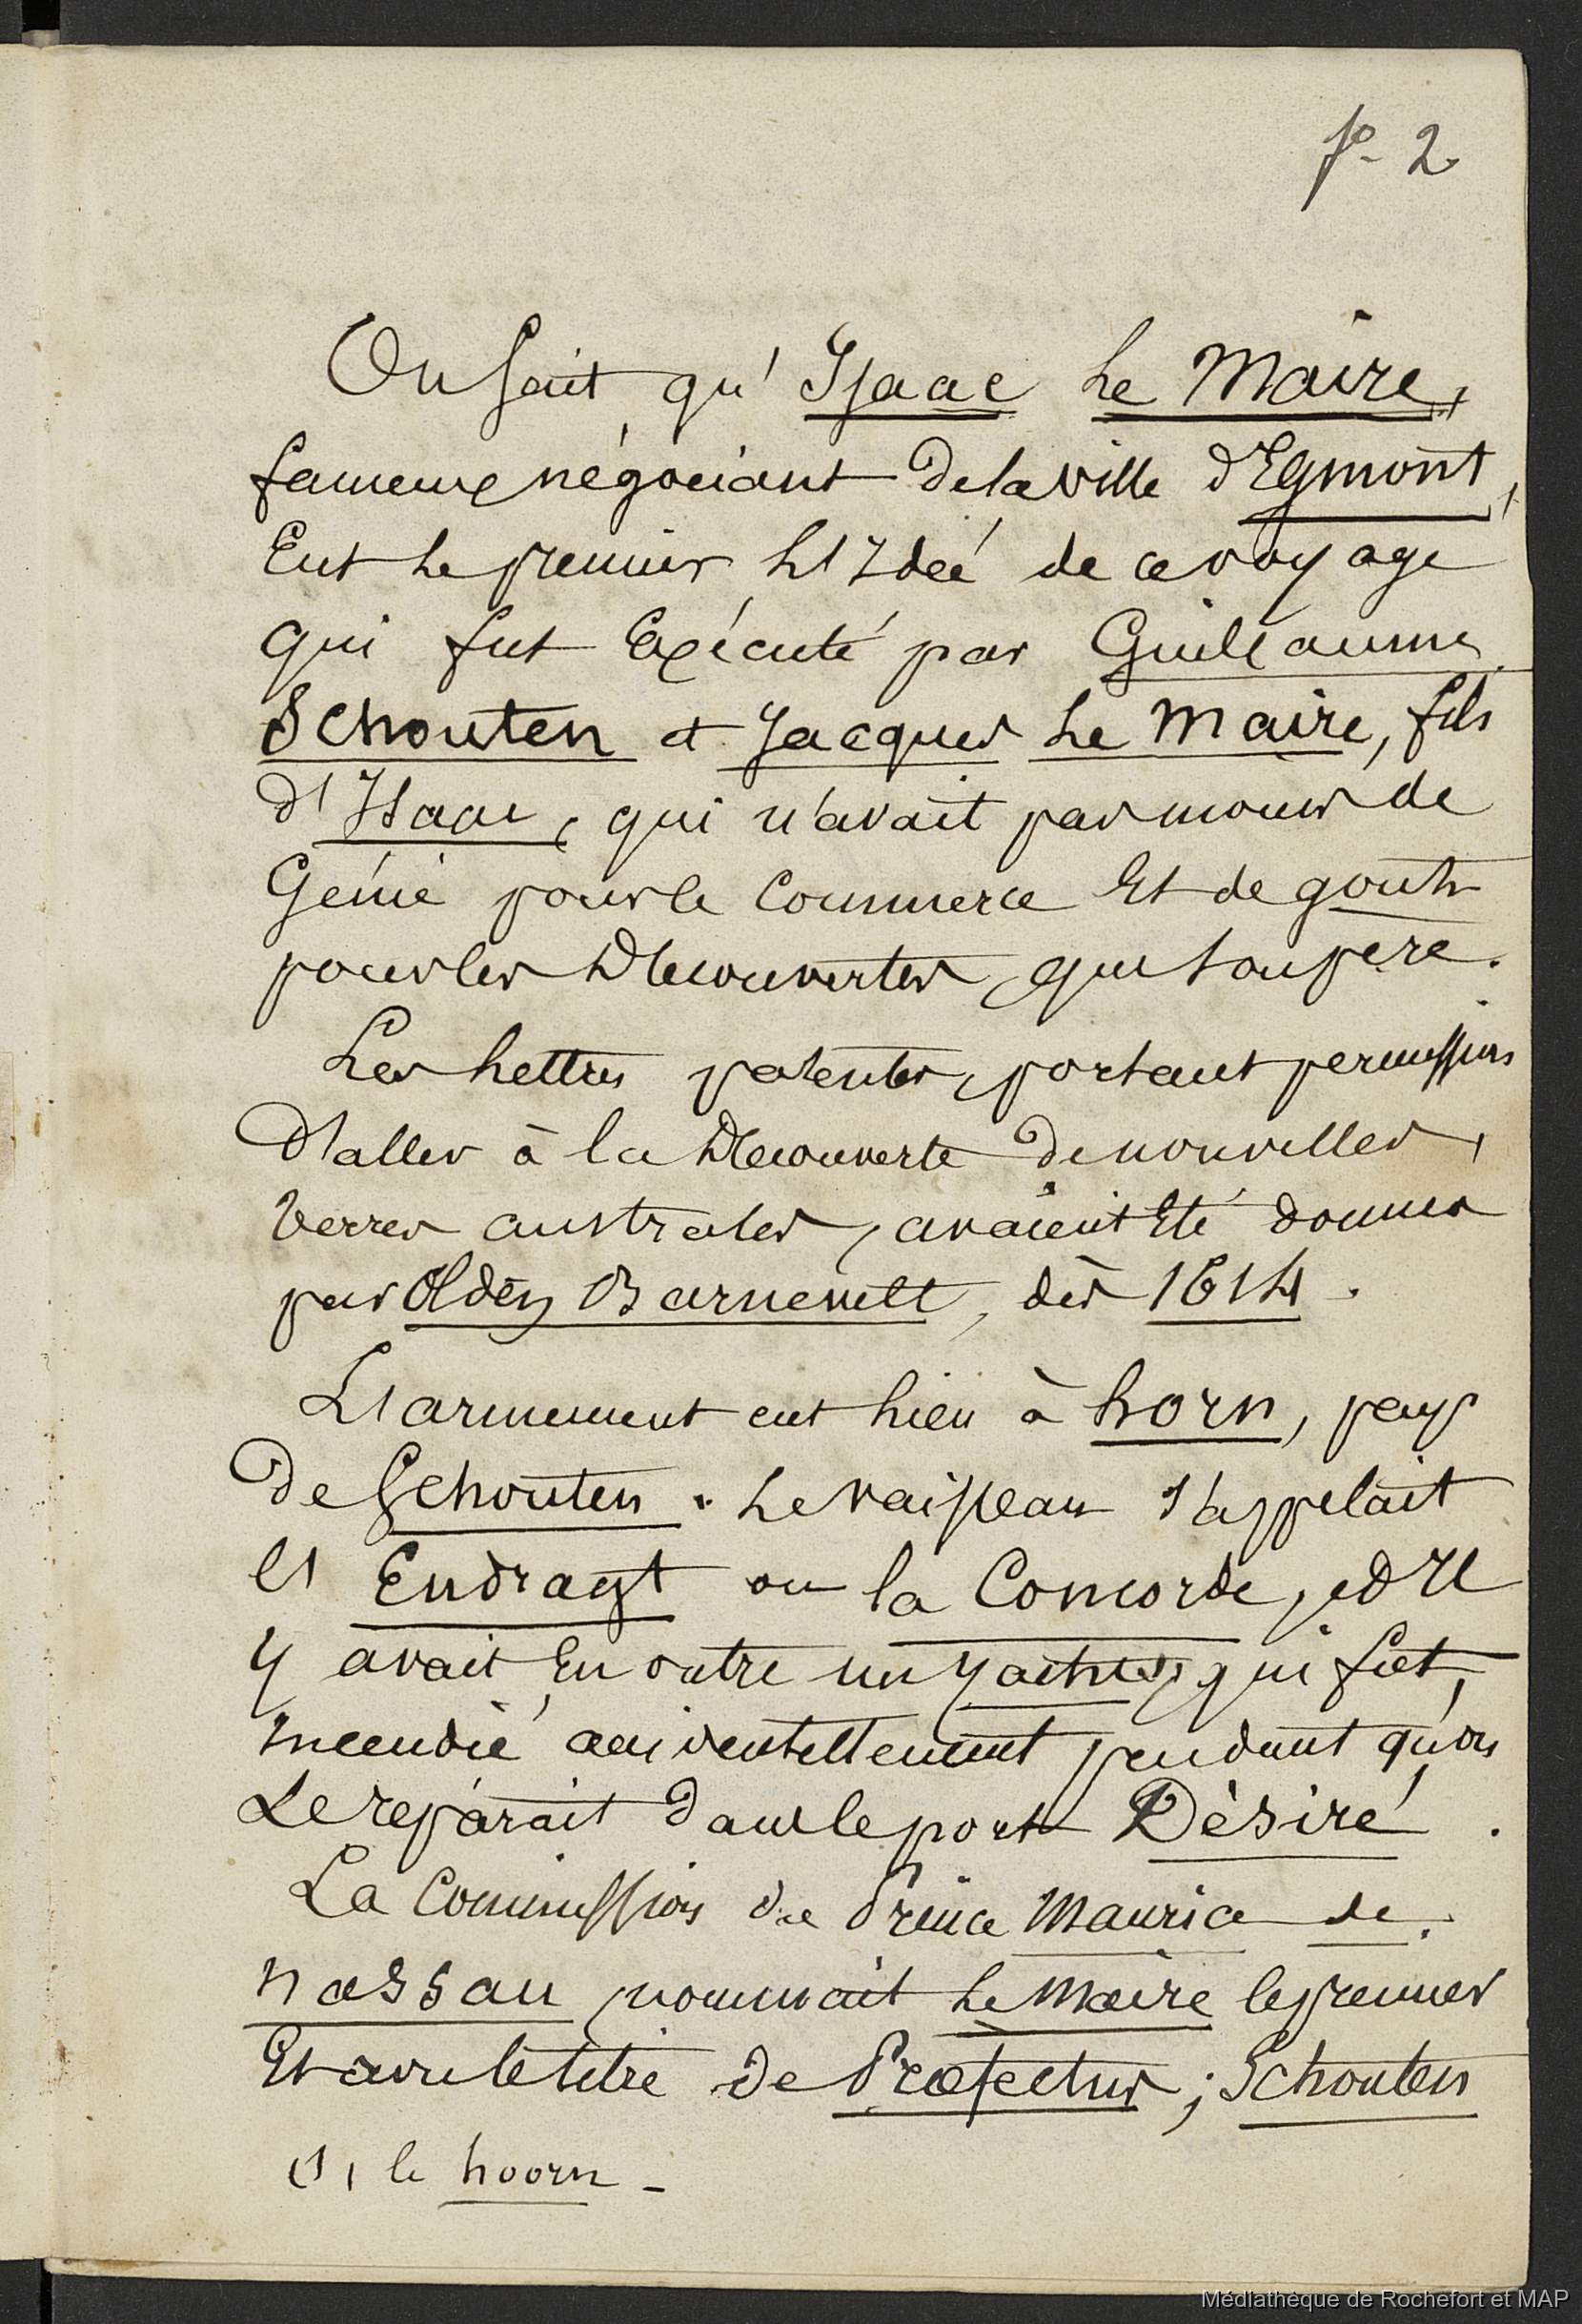 p. 2
On sait qu'Isaac Le Maire,
fameux négociant de la ville d'Egmont,
Eut le premier L'Idée de ce voyage
qui fut Exécuté par Guillaume
Schouten et Jacques Le Maire, fils
d'Isaac, qui n'avait pas moins de
Génie pour le Commerce Et de goûts
pour les Découvertes, que son père.
Les Lettres patentes, portant permission
d'aller à la Découverte de nouvelles,
terres australes, avaient Eté données
par Olden Barnevelt, dès 1614.
L'armement eut lieu à horn, pays
de Schouten. Le vaisseau s'appelait
l'Endragt ou la Concorde, et Il
y avait En outre un yacht (1) qui fut,
incendié accidentellement pendant qu'on
Le réparait dans le port Désiré.
La Commission du Prince Maurice de
nassau, nommait Le Maire le premier
Et avec le titre de Præfectus; Schouten
(1) le hoorn -
Médiathèque de Rochefort et MAP